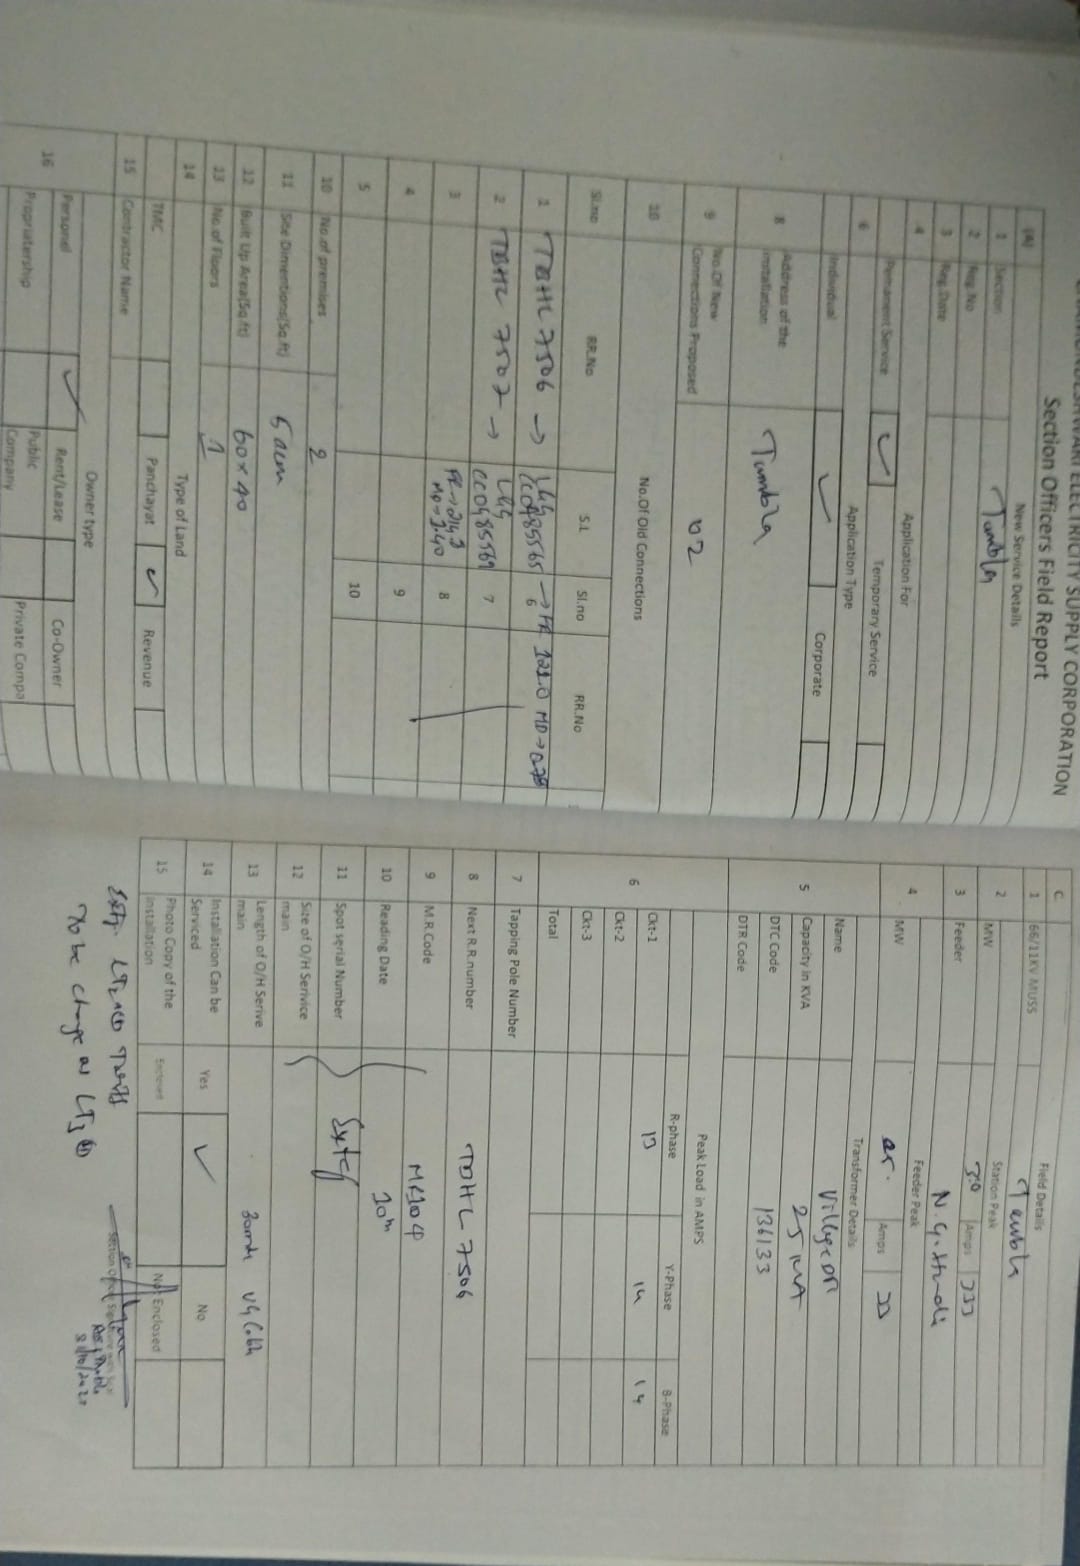 ELECTRICITY SUPPLY CORPORATION
Section Officers Field Report
(A) New Service Details
1 Section Tumbla
2 Reg.No
3 Reg.Date
4 Application For
Permanent Service ✓ Temporary Service
6 Application Type
Individual ✓ Corporate
8 Address of the installation Tumbla
9 No.Of New Connections Proposed 02
10 No.Of Old Connections
Sl.no RR.No S.L Sl.no RR.No
1 TBHL 7506 → L&G CC0485565 6 → FR 121.0 MD→0.78
2 TBHL 7507 → L&G CC0485569 7
3 FR→214.3 MD→1.40 8
4 9
5 10
10 No.of premises 2
11 Site Dimentions(Sq.ft)
12 Built Up Area(Sq.ft) 60×40
13 No.of Floors 1
14 Type of Land
TMC Panchayat ✓ Revenue
15 Contractor Name
Owner type
16 Personel ✓ Rent/Lease Co-Owner
Propriatership Public Company Private Compa
C Field Details
1 66/11KV MUSS Tumbla
2 Station Peak
MW 7.0 Amps 333
3 Feeder
4 Feeder Peak
MW Amps
5 Transformer Details
Name Village
Capacity in KVA 25 KVA
DTC Code 136133
DTR Code
6 Peak Load in AMPS
R-phase Y-Phase B-Phase
Ckt-1 13 14 14
Ckt-2
Ckt-3
Total
7 Tapping Pole Number
8 Next R.R.number TBHL 7506
9 M.R.Code MR104
10 Reading Date 10th
11 Spot serial Number
12 Size of O/H Serivice main
13 Length of O/H Serive main
14 Installation Can be Serviced Yes ✓ No
15 Photo Copy of the installation Enclosed Not Enclosed
To be change as LT3